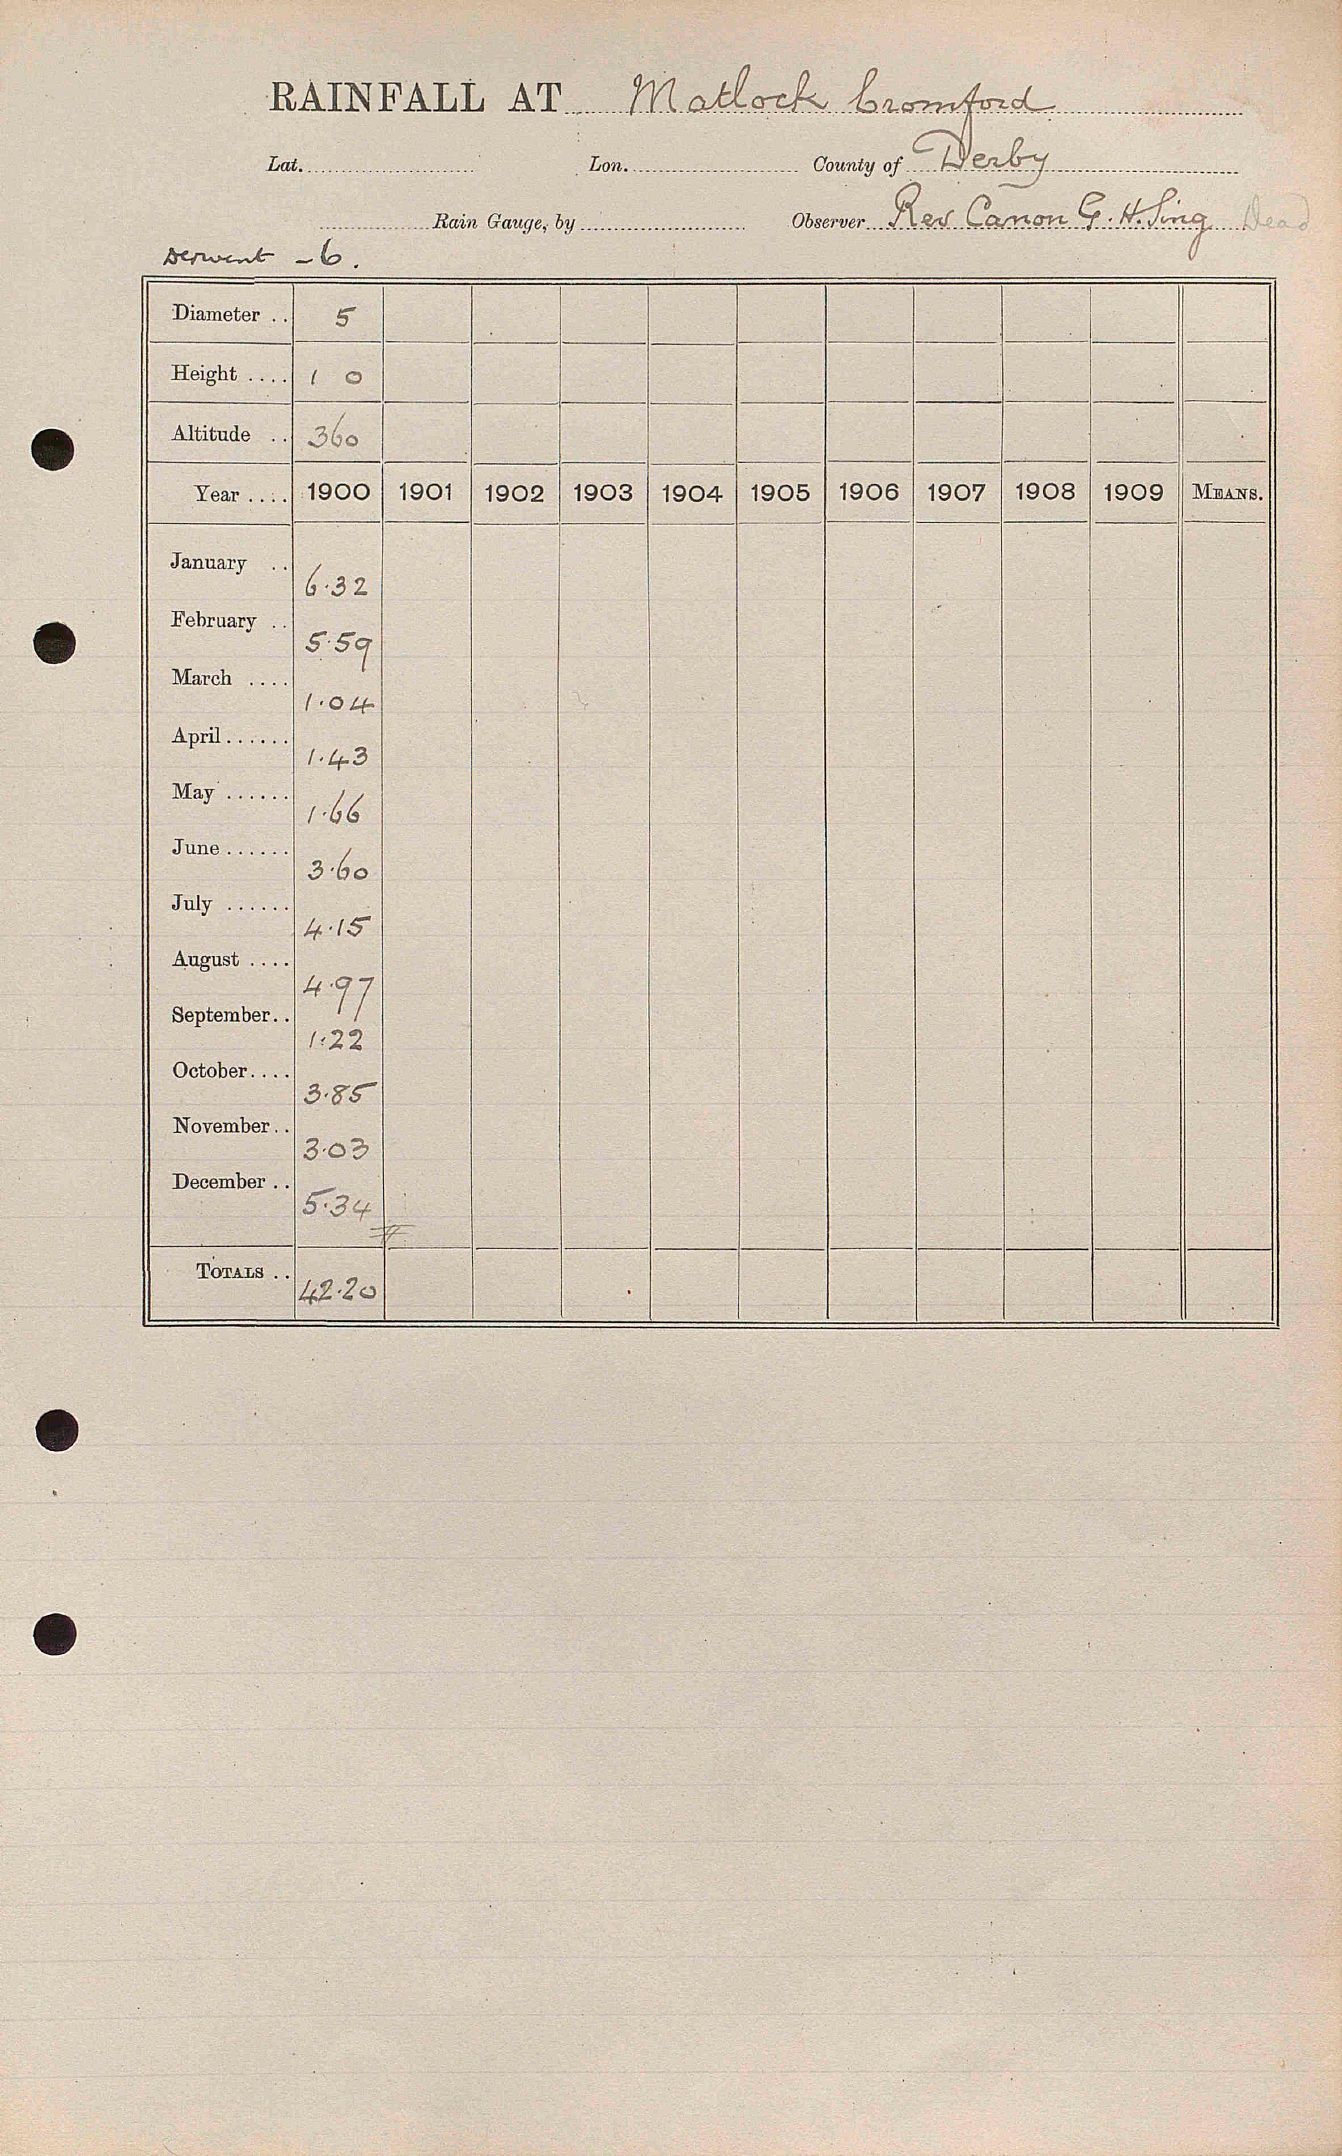 RAINFALL AT Matlock Cromford
Lat. Lon. County of Derby
Rain Gauge, by Observer Rev Canon G. H. Sing Dead
Derwent - 6.
Diameter .. 5
Height .... 1 0
Altitude .. 360
Year .... 1900 1901 1902 1903 1904 1905 1906 1907 1908 1909 MEANS.
January .. 6.32
February .. 5.59
March .... 1.04
April...... 1.43
May ...... 1.66
June...... 3.60
July ...... 4.15
August .... 4.97
September.. 1.22
October.... 3.85
November.. 3.03
December .. 5.34
TOTALS .. 42.20